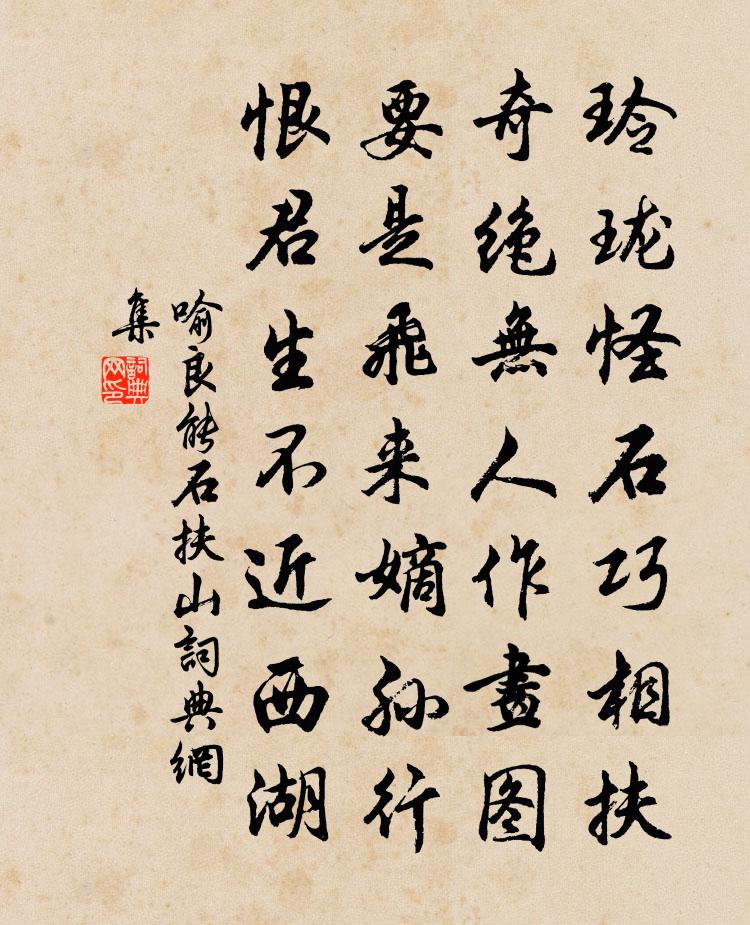 玲珑怪石巧相扶
奇绝無人作畫图
要是飛来嫡孙行
恨君生不近西湖
喻良能石扶山詞典網
集
詞典
网印